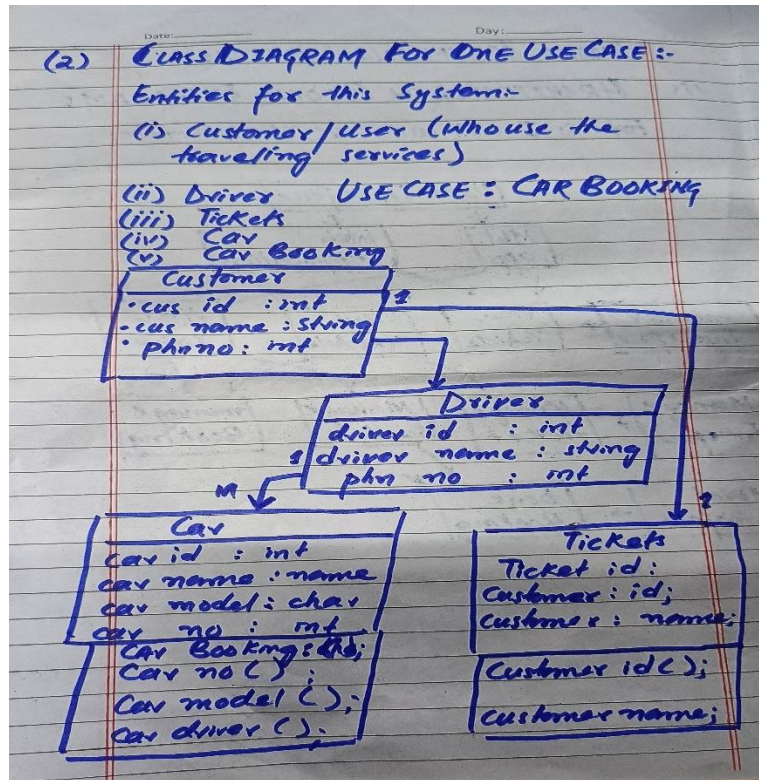 Date: Day:
(2) CLASS DIAGRAM FOR ONE USE CASE :-
Entities for this System:-
(i) Customer/User (Whouse the
traveling services)
(ii) Driver USE CASE : CAR BOOKING
(iii) Tickets
(iv) Car
(v) Car Booking
Customer
• cus id : int
• cus name : string
• phn no : int
1
Driver
driver id : int
driver name : string
phn no : int
1
M
1
Car
car id : int
car name : name
car model : char
car no : int
Car Booking
Car no ( ) ;
Car model ( ) ;
Car driver ( ) ;
Tickets
Ticket id :
Customer : id;
Customer : name;
Customer id ( ) ;
Customer name;